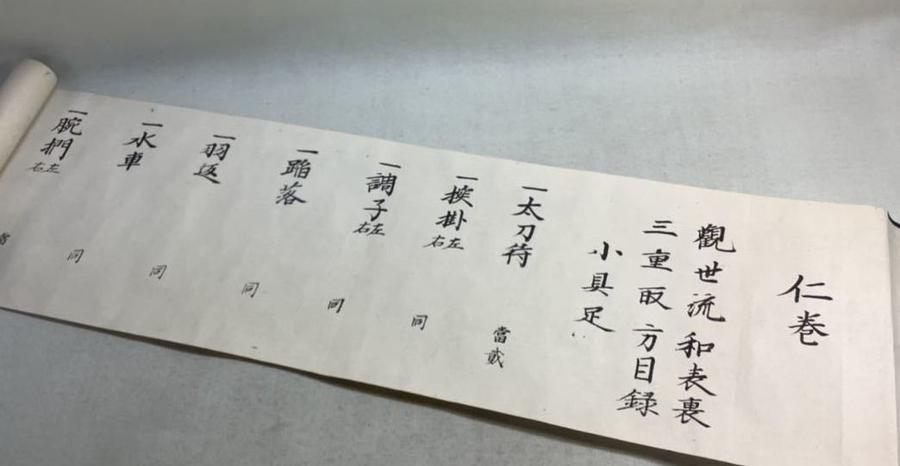 仁巻
觀世流和表裏
三重取方目録
小具足
一太刀待 當戴
一挨掛左右 同
一調子左右 同
一蹈落 同
一羽返 同
一水車 同
一腕捫左右